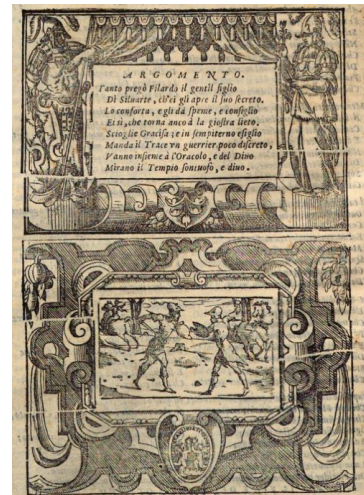 ARGOMENTO.
Tanto pregò Filardo il gentil figlio
Di Siluarte, ch'ei gli apre il suo secreto.
Lo conforta, e gli dà speme, e consiglio
Et ei, che torna anco à la giostra lieto.
Scioglie Gracisa; e in sempiterno esiglio
Manda il Trace vn guerrier poco discreto,
Vanno insieme à l'Oracolo, e del Diuo
Mirano il Tempio sontuoso, e diuo.